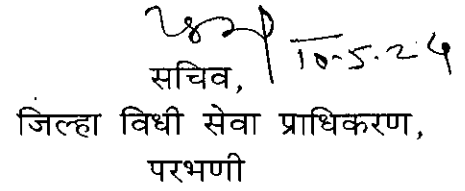 10.5.24
सचिव,
जिल्हा विधी सेवा प्राधिकरण,
परभणी